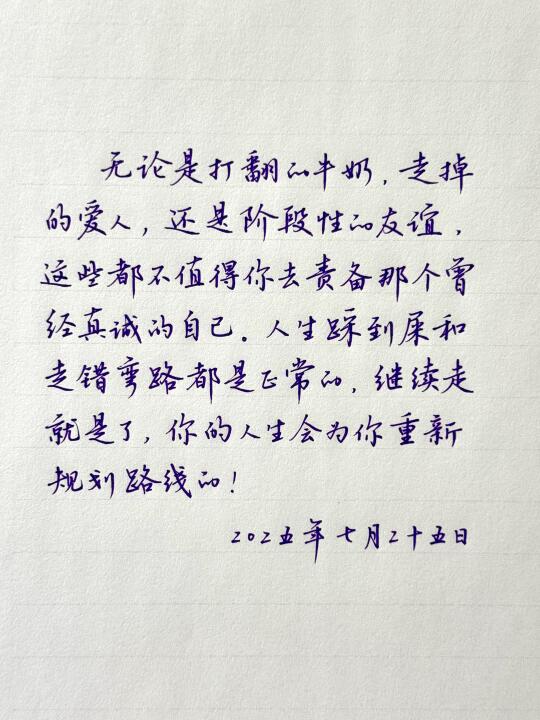 无论是打翻的牛奶，走掉
的爱人，还是阶段性的友谊，
这些都不值得你去责备那个曾
经真诚的自己。人生踩到屎和
走错弯路都是正常的，继续走
就是了，你的人生会为你重新
规划路线的！
二〇二五年七月二十五日